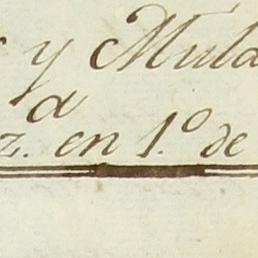 y Mula
z.ª en 1.º de